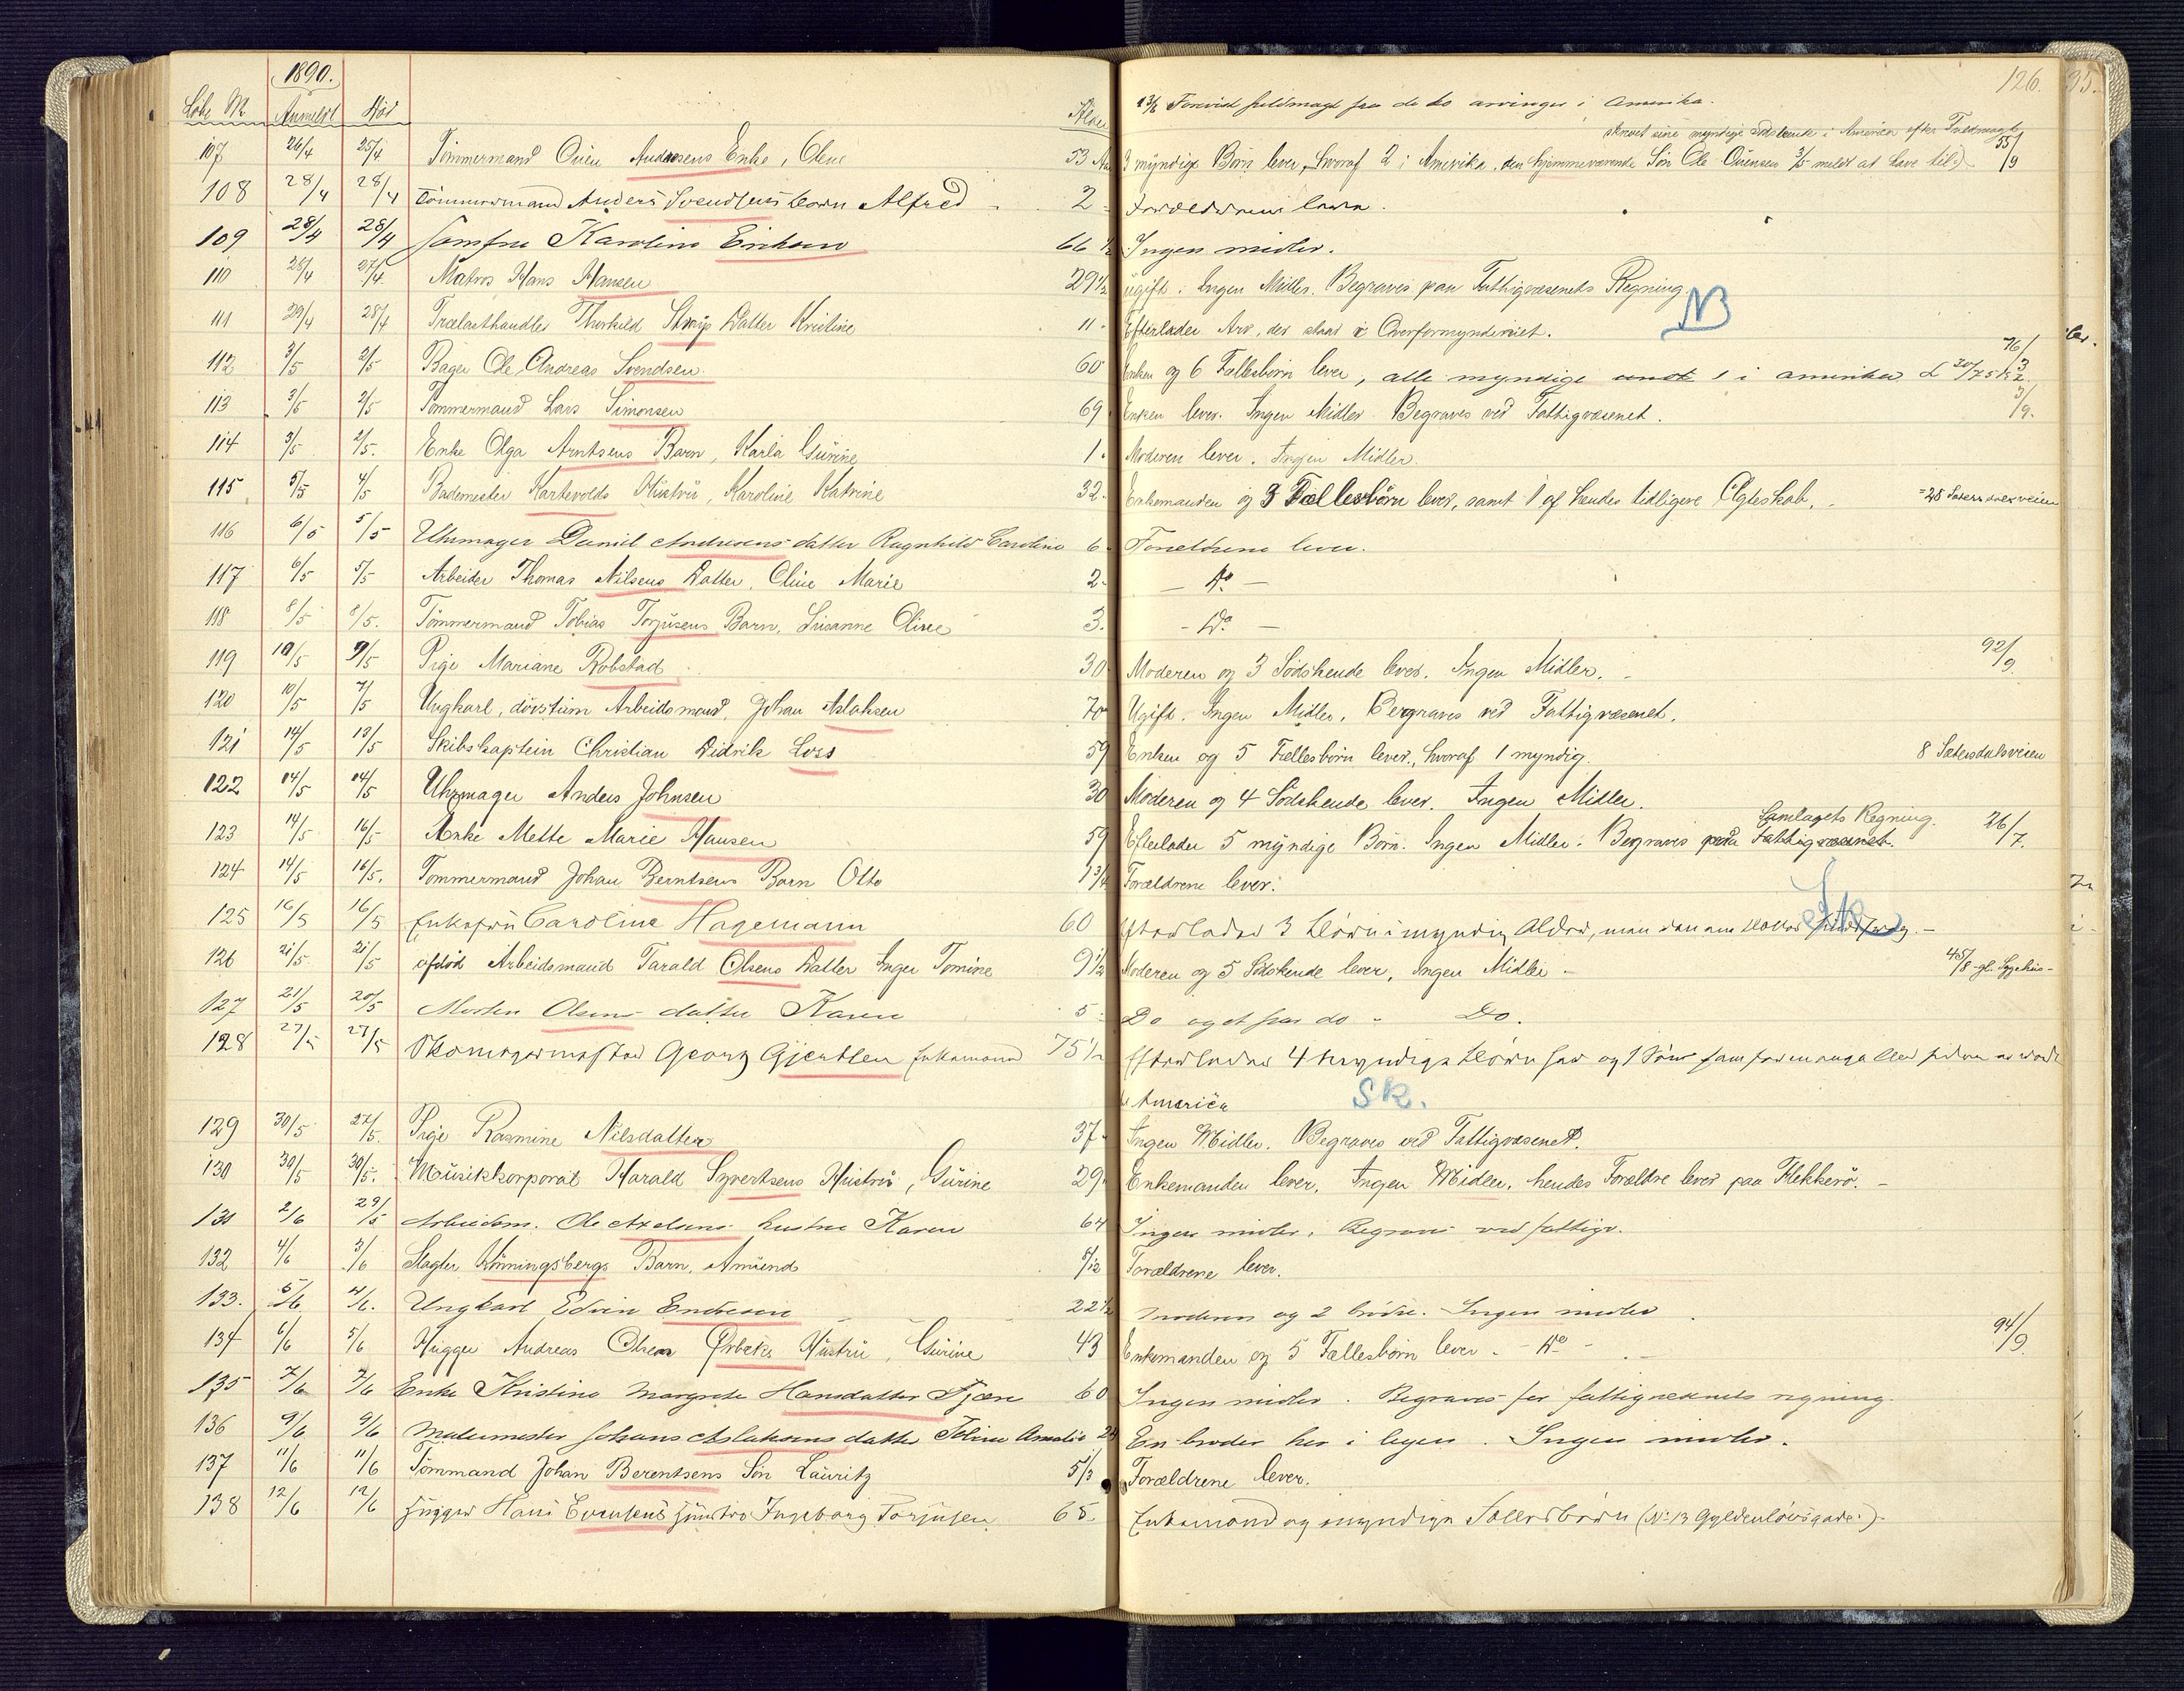 1890.
Löbe № Anmeldt Död Alder
126.
13/6 Forevist fuldmagt fra de to arvinger i Amerika.
skrevet sine myndige Södskende i Amerika efter Fuldmagt
107 26/4 25/4 Tömmermand Ouen Andersens Enke, Olene 53 Aar 3 myndige Börn lever, hvoraf 2 i Amerika, den hjemmeværende Sön Ole Ouensen 3/5 meldt at have til 55/9
108 28/4 28/4 Tömmermand Anders Svendsens barn Alfred 2 Forældrene leve.
109 28/4 28/4 Jomfru Karoline Eriksen 66 1/2 Ingen midler.
110 28/4 27/4 Matros Hans Hansen 29 1/2 ugift. Ingen Midler. Begraves paa Fattigvæsenets Regning.
NB
111 29/4 28/4 Trælasthandler Thorkild Datter Kristine 11 Efterlader Arv, der staar i Overformynderiet.
112 3/5 2/5 Bager Ole Andreas Svendsen 60 Enken og 6 Fællesbörn lever, alle myndige 1 i amerika 76/3
113 3/5 2/5 Tömmermand Lars Simonsen 69 Enken lever. Ingen Midler. Begraves ved Fattigvæsenet. 3/9.
114 3/5 2/5. Enke Olga Arntsens Barn, Karla Gurine 1. Moderen lever. Ingen Midler.
115 5/5 4/5 Bademester Kartevolds Hustru, Karoline Katrine 32. Enkemanden og 3 Fællesbörn lever, samt 1 af hendes tidligere Ægteskab. 28
116 6/5 5/5 Uhrmager Daniel Andresens datter Ragnhild Caroline 6 Forældrene lever.
117 6/5 5/5 Arbeider Thomas Nilsens Datter, Oline Marie 2. - Do -
118 8/5 8/5. Tömmermand Tobias Torjusens Barn, Susanne Oline 3. - Do -
119 10/5 9/5 Pige Mariane Robstad 30 Moderen og 3 Södskende lever. Ingen Midler. 92/9.
120 10/5 7/5 Ungkarl, dövstum Arbeidsmand, Johan Aslaksen 70 Ugift. Ingen Midler, Bergraves ved Fattigvæsenet.
121 14/5 13/5 Skibskaptein Christian Didrik Loss 59 Enken og 5 Fællesbörn lever, hvoraf 1 myndig. 8 Sætersdalsveien
122 14/5 14/5 Uhrmager Anders Johnsen 30 Moderen og 4 Södskende lever. Ingen Midler.
Samlagets Regning. 26/7.
123 14/5 16/5 Enke Mette Marie Hansen 59 Efterlader 5 myndige Börn. Ingen Midler. Begraves paa Fattigvæsenet.
124 14/5 16/5. Tömmermand Johan Berntsens Barn Otto 1 3/4 Forældrene lever.
125 16/5 16/5 Enkefru Caroline Hagemann 60 Efterlader 3 Börn i myndig Alder, men
Sk
126 21/5 21/5 afdöd Arbeidsmand Tarald Olsens Datter Inger Tomine 9 1/2 Moderen og 5 Södskende lever, Ingen Midler - 45/8 gl. Sygehus -
127 21/5 20/5 Morten Olsens datter Karen 5 Do Do.
128 27/5 27/5 Skomagermester Georg Gjertsen Enkemand 75 1/2 Efterlader 4 myndige Börn her og 1 Sön som for mange Aar siden
America Sk.
129 30/5 27/5. Pige Rasmine Nilsdatter 37 Ingen Midler. Begraves ved Fattigvæsenet.
130 30/5 30/5. Musikkorporal Harald Syvertsens Hustru, Gurine 29 Enkemanden lever. Ingen Midler, hendes Forældre lever paa Flekkerö. -
131 2/6 29/5 Arbeidsm. Ole Axelsens hustru Karen 64 Ingen midler, Begraves ved fattigv.
132 4/6 3/6 Slagter Könningsbergs Barn, Amund 5/12 Forældrene lever.
133. 5/6 4/6. Ungkarl Edvin Endresen 22 1/2 Moderen og 2 brödre. Ingen midler.
134 6/6 5/6 Hugger Andreas Olsen Örbæks Hustru, Gurine 43 Enkemanden og 5 Fællesbörn lever. - Do - 94/9.
135 7/6 7/6 Enke Kristine Margrete Hansdatter Fjære 60 Ingen midler. Begraves for fattigvæsenets regning.
136 9/6 9/6 Malermester Johans Aslaksens datter Amalie 24 En broder her i byen. Ingen midler.
137 11/6 11/6 Tömmand Johan Berentsens Sön Lauritz 5/3 Forældrene lever.
138 12/6 12/6 Hugger Hans Evensens hustru Ingeborg Torjusen 65. Enkemand og myndige Fællesbörn (No 13 Gyldenlövsgade.)